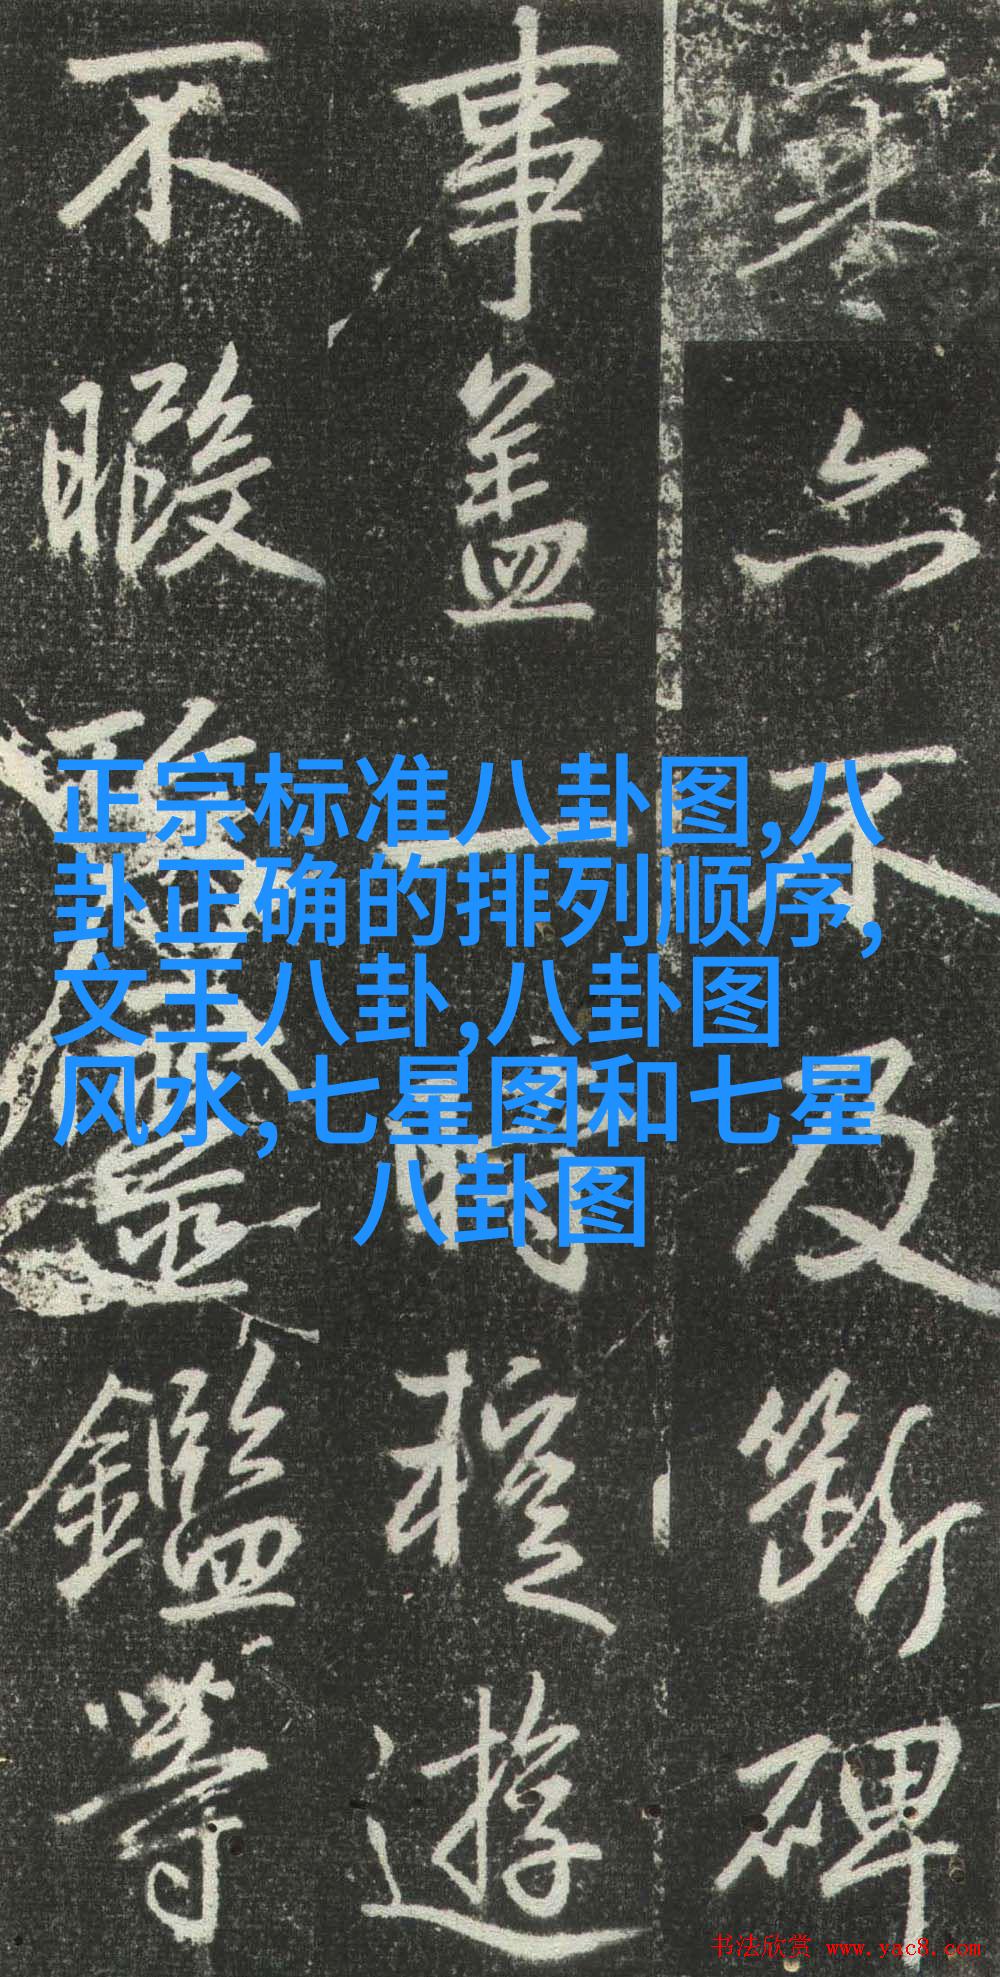 亦不及斷碑
事盖一時極遊
不暇鑑等
正宗标准八卦图,八
卦正确的排列顺序,
文王八卦,八卦图
风水,七星图和七星
八卦图
书法欣赏 www.yac8.com